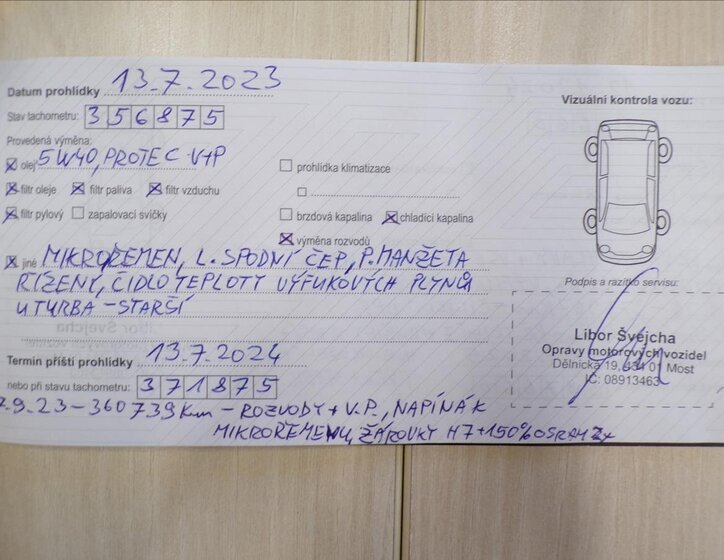 Datum prohlídky 13.7.2023
Vizuální kontrola vozu:
Stav tachometru: 356875
Provedená výměna:
olej 5W40, PROTEC V+P
prohlídka klimatizace
filtr oleje filtr paliva filtr vzduchu
filtr pylový zapalovací svíčky brzdová kapalina chladící kapalina
výměna rozvodů
jiné MIKROŘEMEN, L. SPODNÍ ČEP, P. MANŽETA
ŘÍZENÍ, ČIDLO TEPLOTY VÝFUKOVÝCH PLYNŮ
U TURBA - STARŠÍ
Podpis a razítko servisu:
Libor Švejcha
Opravy motorových vozidel
Dělnická 19, 434 01 Most
IČ: 08913463
Termín příští prohlídky 13.7.2024
nebo při stavu tachometru: 371875
7.9.23 - 360739 Km - ROZVODY + V.P., NAPÍNÁK
MIKROŘEMENU, ŽÁROVKY H7 +150% OSRAM 2x